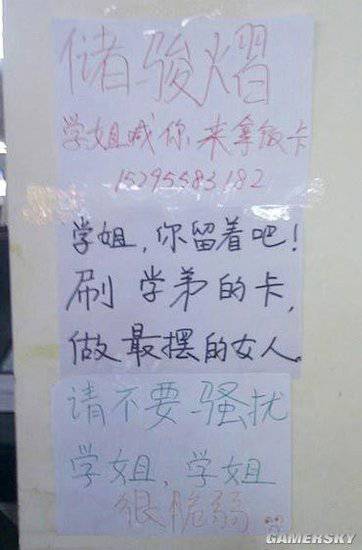 储骏熠
学姐喊你来拿饭卡
15295583182
学姐,你留着吧!
刷学弟的卡,
做最摆的女人.
请不要骚扰
学姐,学姐
很脆弱..
GAMERSKY